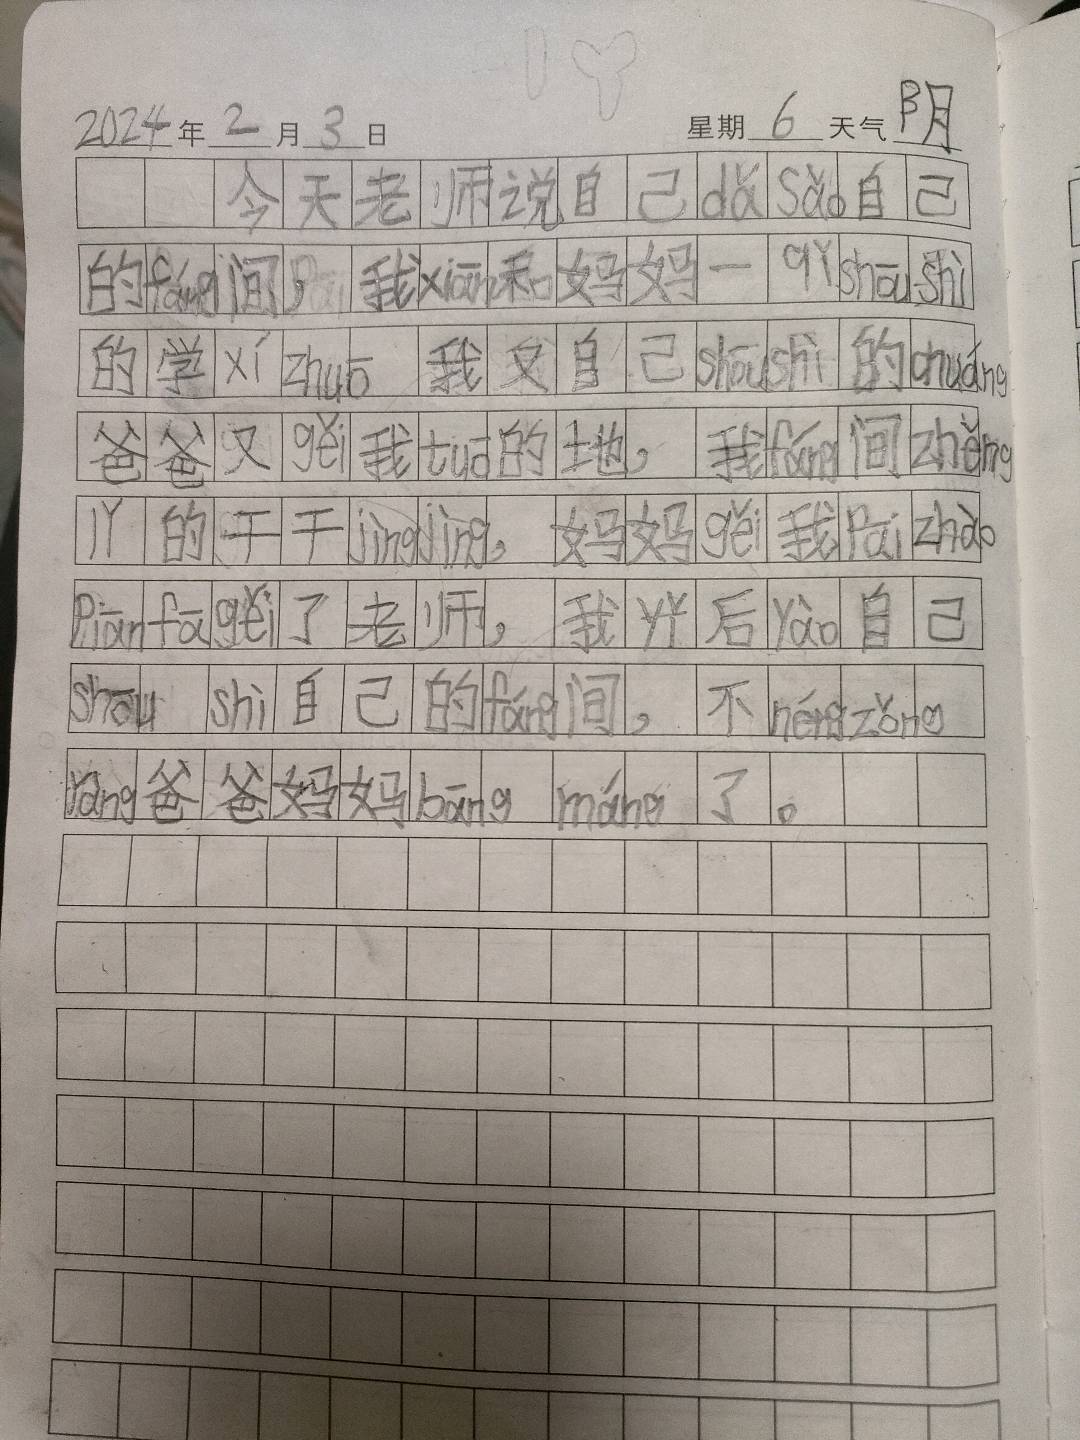 2024年2月3日 星期6天气阴
今天老师说自己dǎsǎo自己
的fáng间，我xiān和妈妈一qǐshōushi
的学xízhuō 我又自己shōushi的chuáng
爸爸又gěi我tuō的地，我fáng间zhěng
个的干干jìngjìng，妈妈gěi我Pāizhào
Piànfāgěi了老师，我yǐ后yào自己
shōushi自己的fáng间，不néngzǒng
ràng爸爸妈妈bāngmáng了。